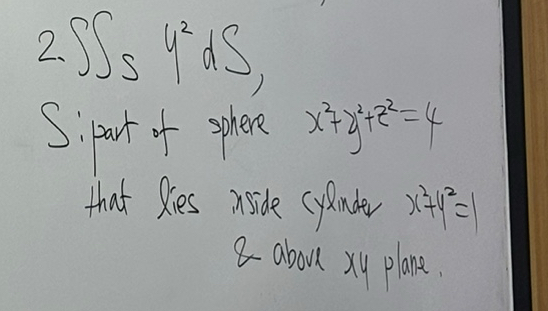 2. ∬_S y² dS,
S: part of sphere x²+y²+z²=4
that lies inside cylinder x²+y²=1
& above xy plane.